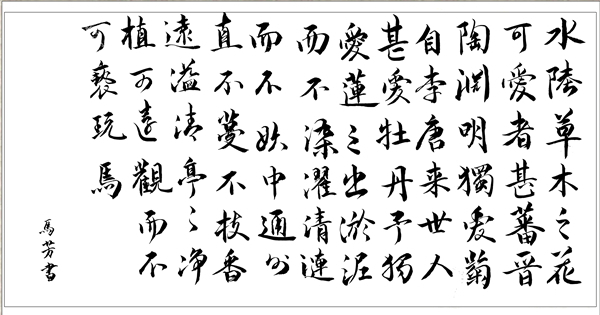 水陸草木之花
可愛者甚蕃晉
陶渊明獨爱菊
自李唐来世人
甚愛牡丹予独
愛蓮之出淤泥
而不染濯清漣
而不妖中通外
直不蔓不枝香
遠溢清亭々净
植可遠觀而不
可褻玩馬
馬芳書